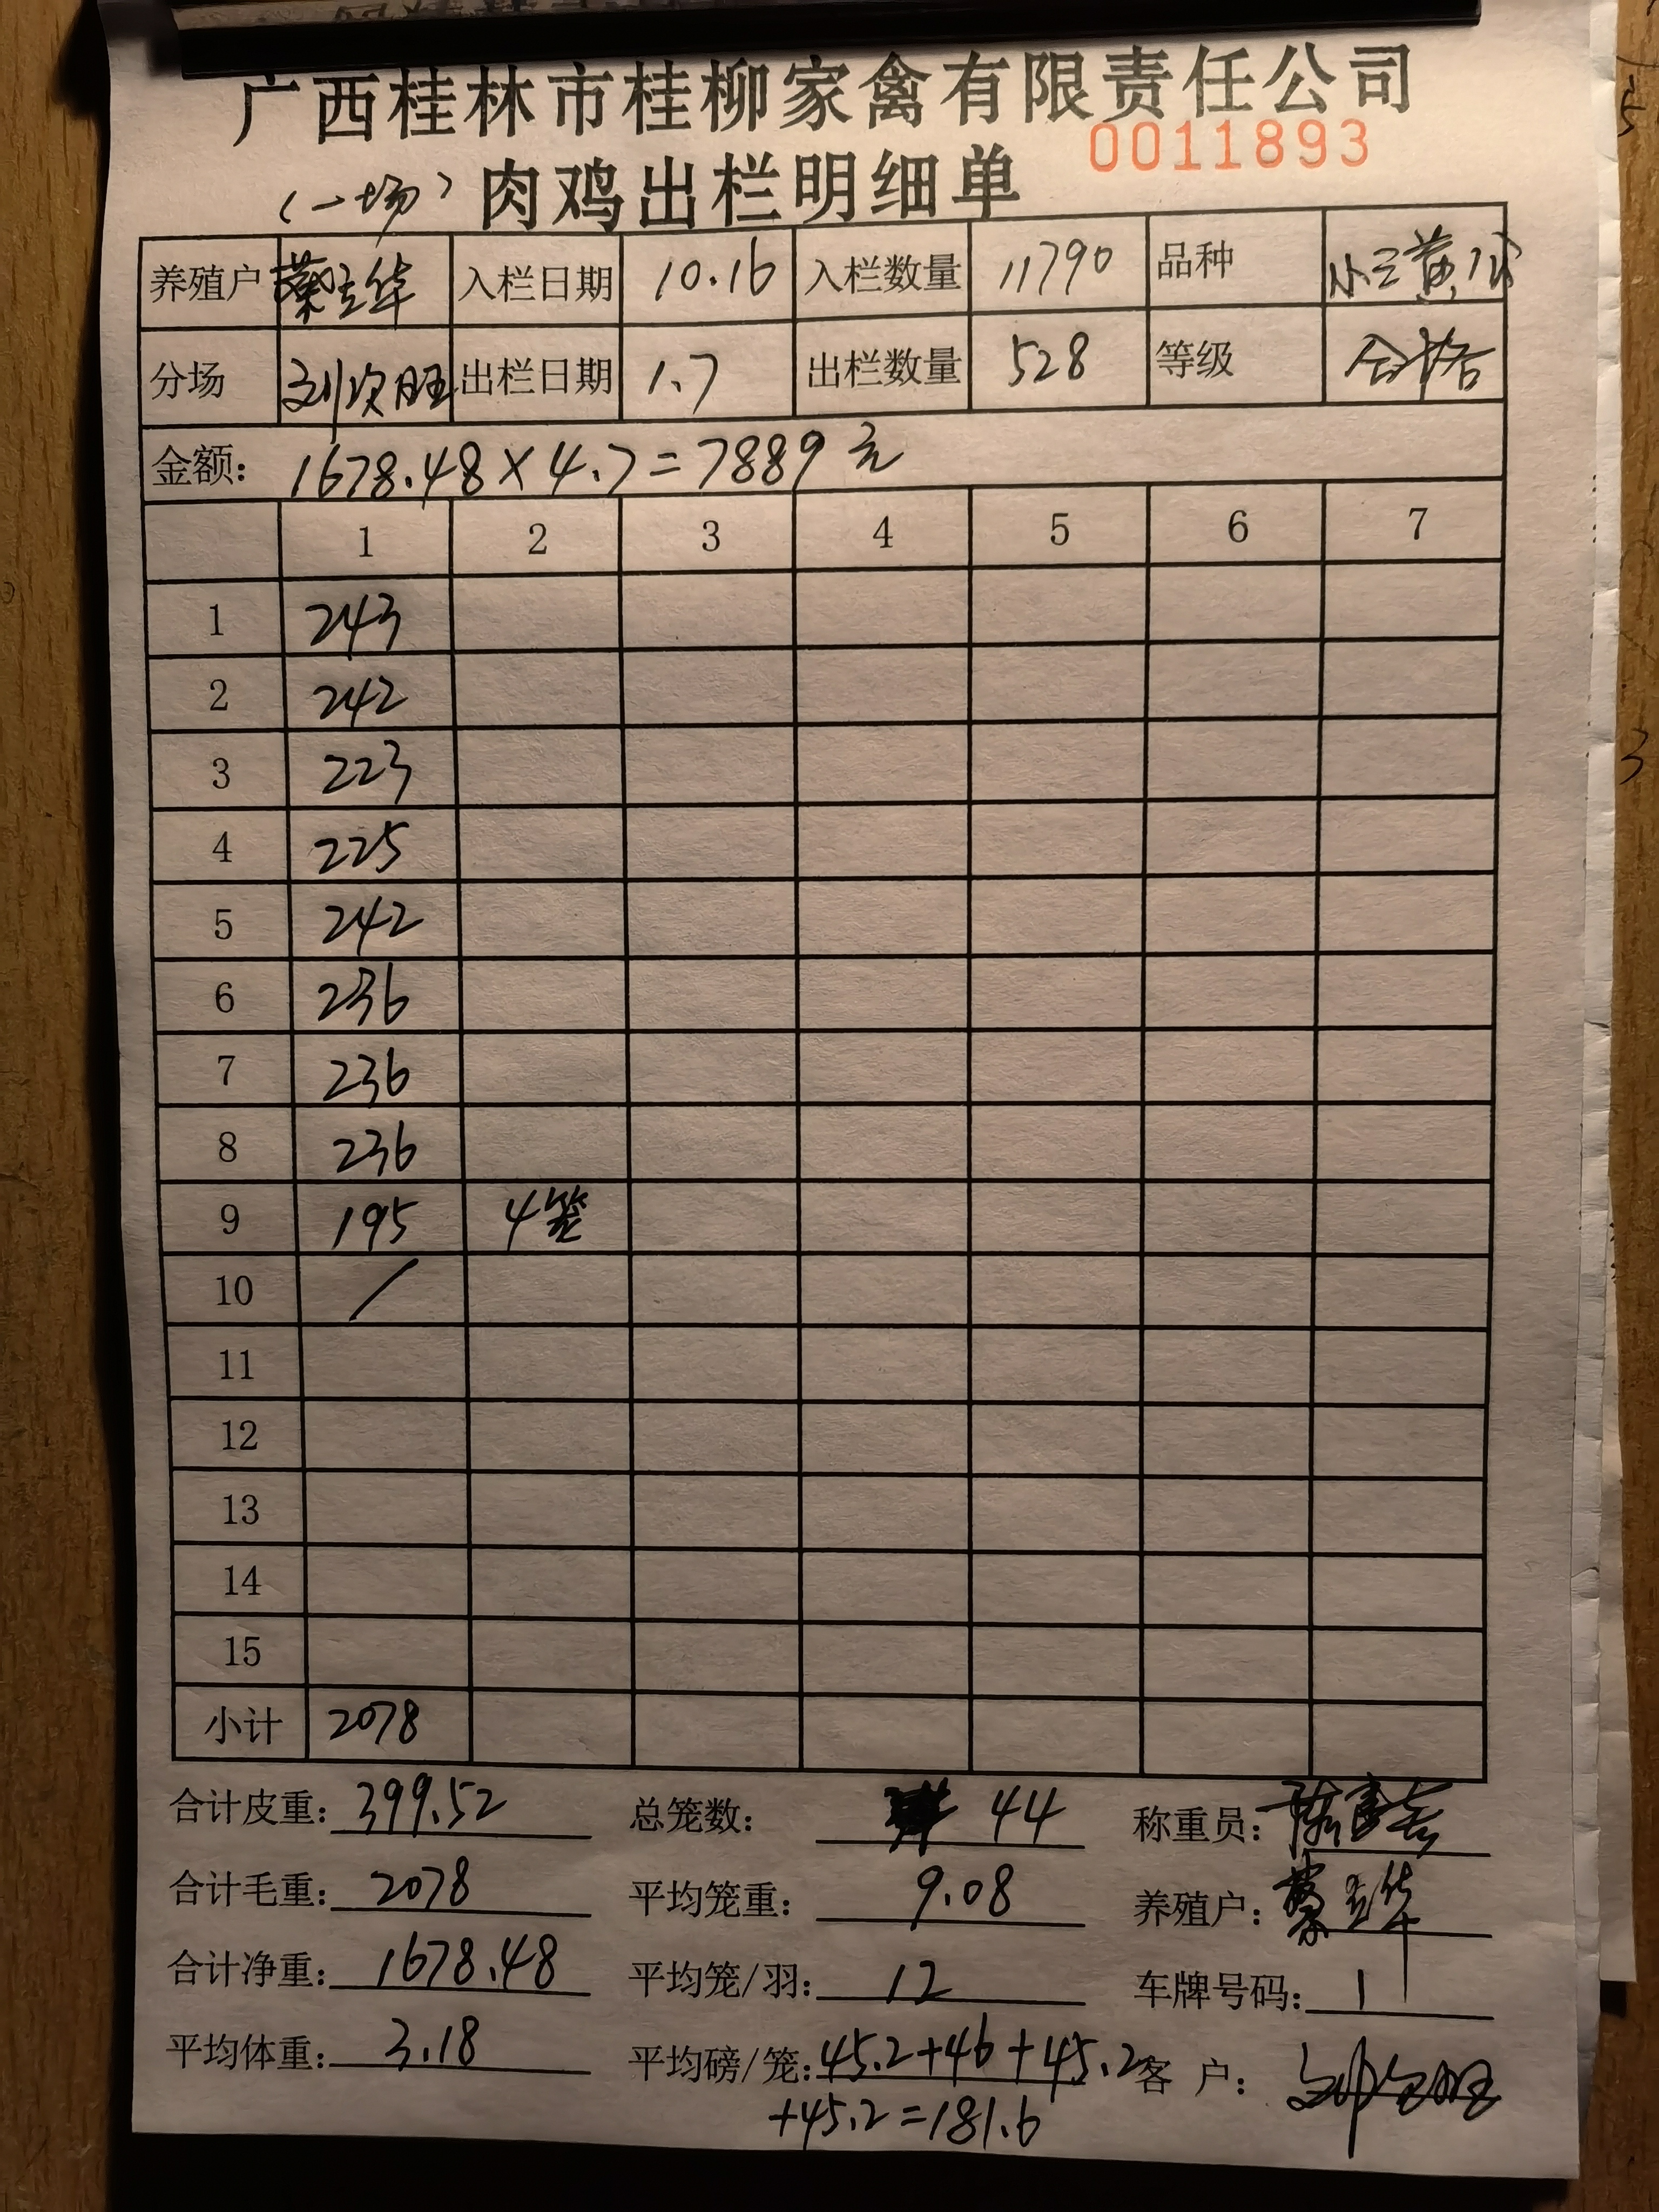 广西桂林市桂柳家禽有限责任公司
0011893
(一场) 肉鸡出栏明细单
养殖户 蔡立华 入栏日期 10.16 入栏数量 11790 品种 小三黄公
分场 刘次旺 出栏日期 1.7 出栏数量 528 等级 合格
金额: 1678.48×4.7=7889元
1 2 3 4 5 6 7
1 243
2 242
3 223
4 225
5 242
6 236
7 236
8 236
9 195 4笼
10 /
11
12
13
14
15
小计 2078
合计皮重: 399.52 总笼数: 44 称重员:
合计毛重: 2078 平均笼重: 9.08 养殖户: 蔡立华
合计净重: 1678.48 平均笼/羽: 12 车牌号码: 1
平均体重: 3.18 平均磅/笼: 45.2+46+45.2 客 户:
+45.2=181.6